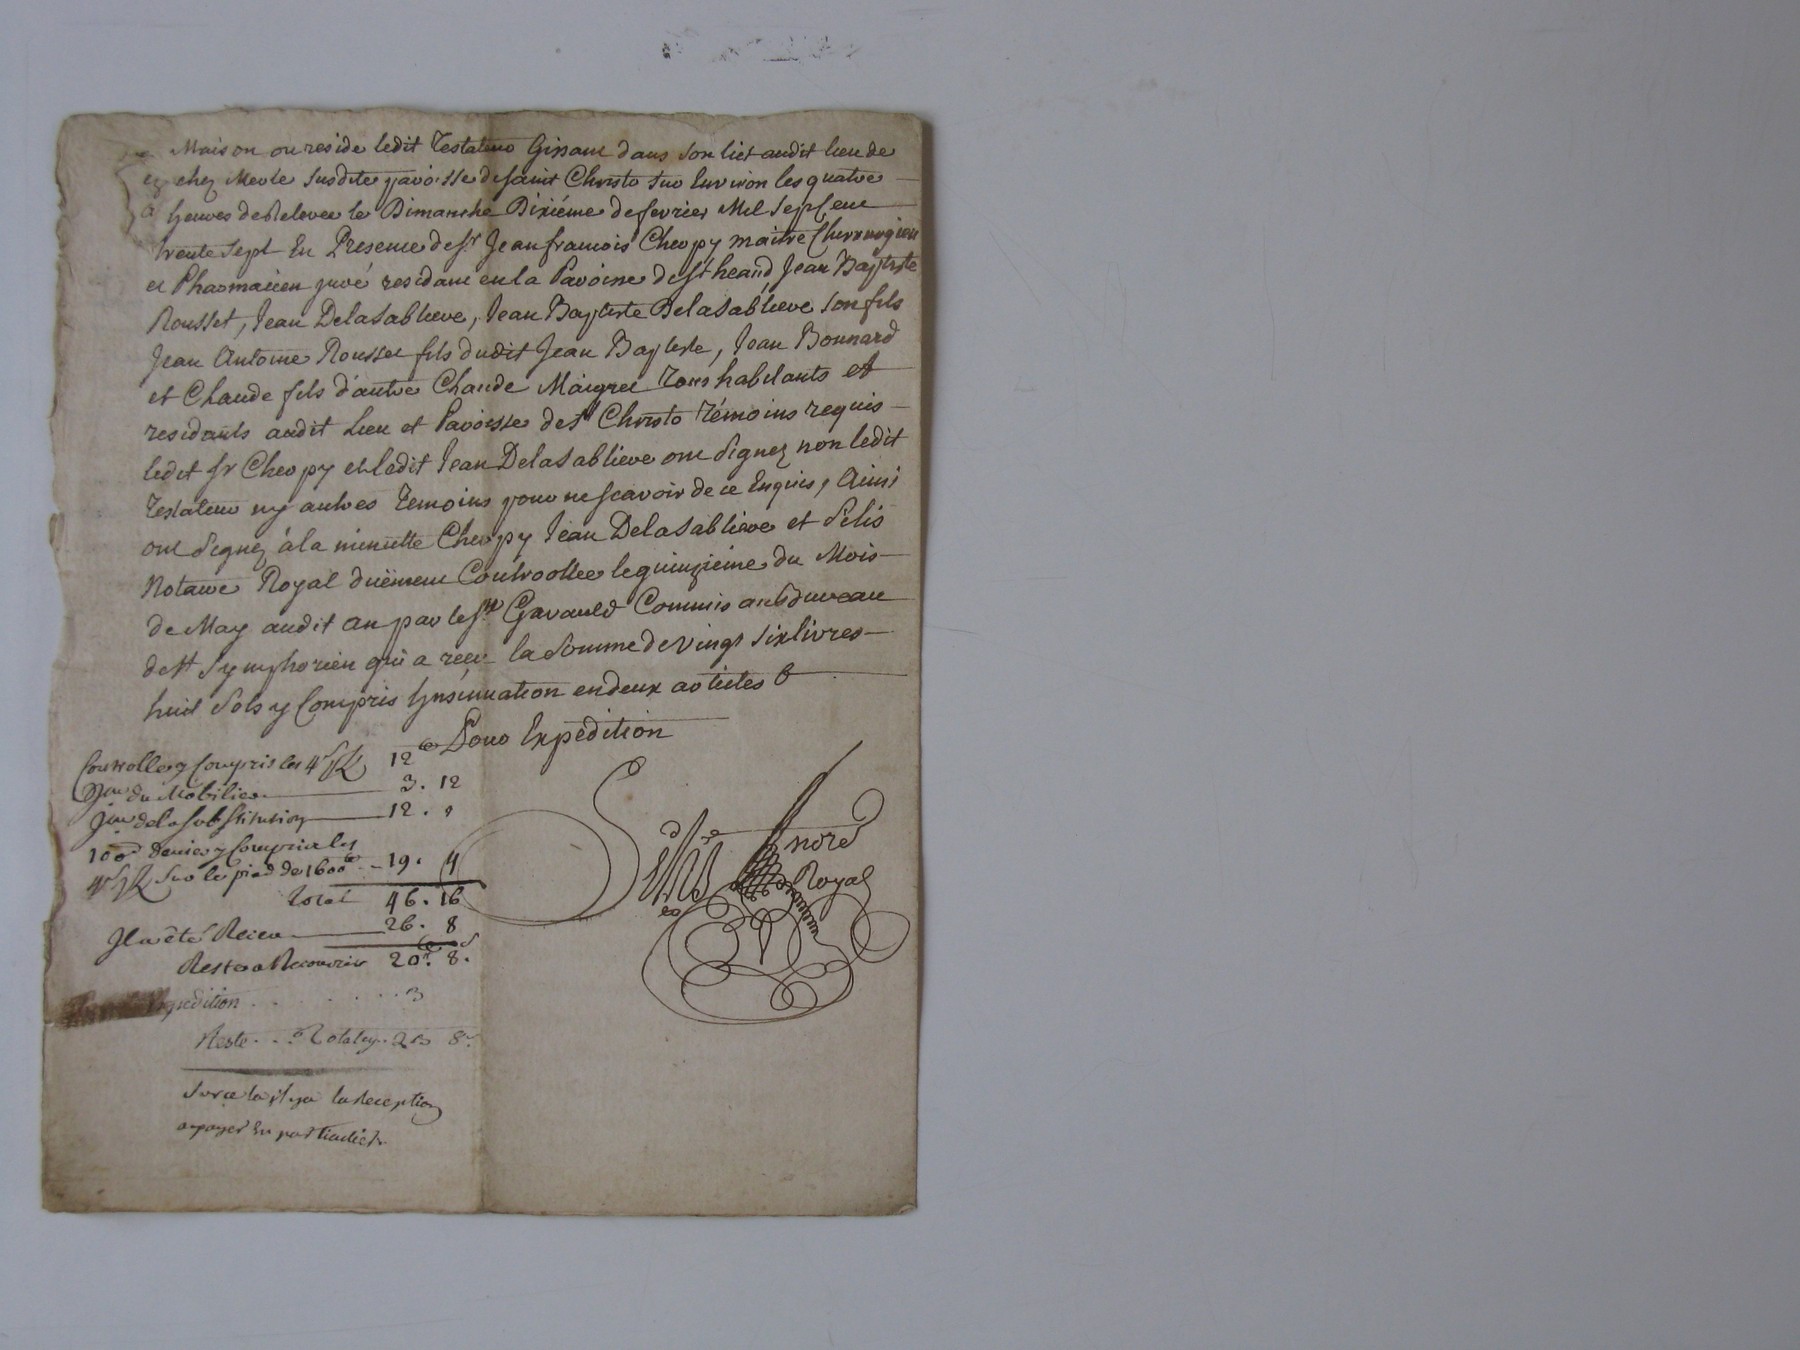 Maison ou reside ledit Testateur Gissant dans son liet audit lieu de
chez Merle susditte paroisse de saint Christo sur Environ les quatre
heures de Relevee le Dimanche Dixiéme de fevrier Mil Sept Cent
trente sept En Presence de Sr Jean francois Cherpy maitre Chirurgien
et Pharmacien juré residant en la Paroisse de St heand, Jean Baptiste
Rousset, Jean Delasabliere, Jean Baptiste Delasabliere son fils
Jean Antoine Rousset fils dudit Jean Baptiste, Jean Bonnard
et Claude fils d'autre Claude Maigret Tous habitants et
residants audit Lieu et Paroisse de St Christo Témoins requis
ledit Sr Cherpy et ledit Jean Delasabliere ont Signez non ledit
Testateur ny autres Temoins pour ne scavoir de ce Enquis, Ainsi
ont Signez à la minutte Cherpy Jean Delasabliere et
Notaire Royal duëment Controollee le quinzieme du Mois
de May audit an par le Sr Gavauld Commis au bureau
de St Symphorien qui a receu la Somme de vingt six livres
huit Sols y Compris Ynsinuation en deux articles
Pour Expedition
Controlle y Compris les 4 s 12
du Mobilier 3. 12
de la Substitution 12.
100e Denier y Compris les
4 s sur le pied de 1600 19. 4
Total 46. 16
Il a été Receu 26. 8
Reste a Recouvrir 20. 8.
Expedition 3
Reste 8
sur ce la il y a la Reception
a payer En particulier
Royal